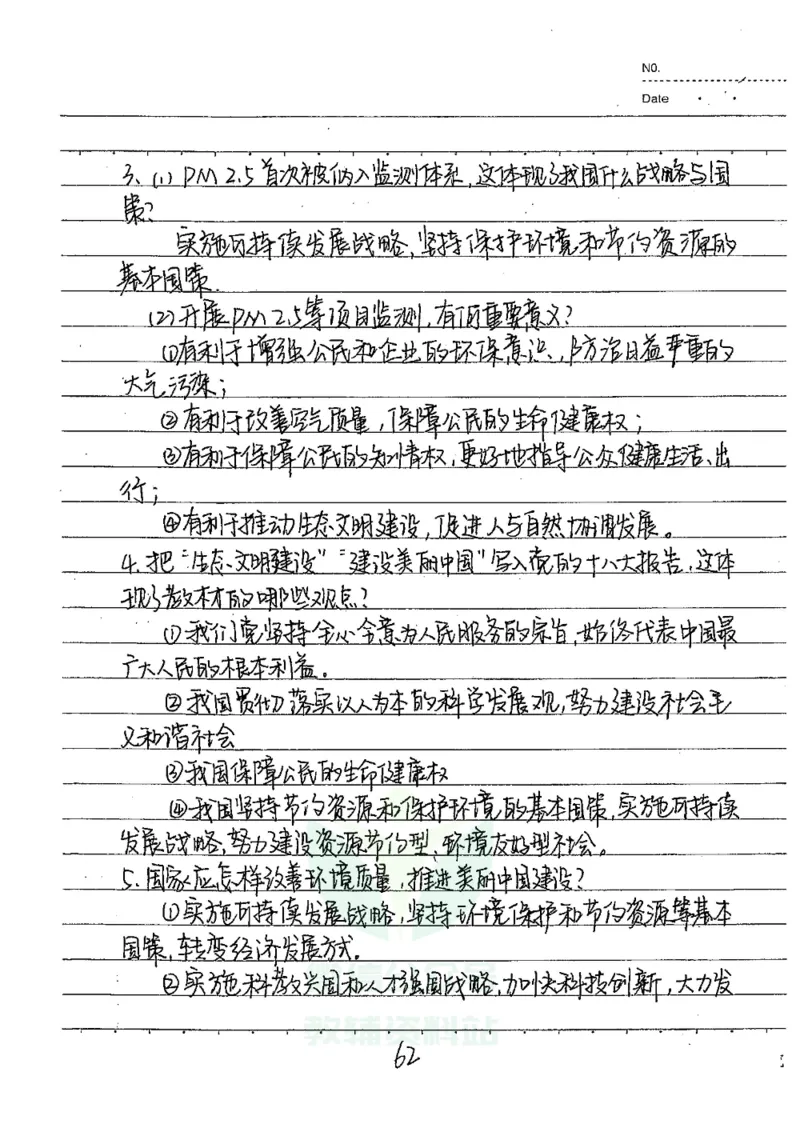 NO.
Date
3、(1) PM2.5首次被纳入监测体系,这体现了我国什么战略与国
策?
实施可持续发展战略,坚持保护环境和节约资源的
基本国策.
(2)开展PM2.5等项目监测,有何重要意义?
①有利于增强公民和企业的环保意识、防治日益严重的
大气污染;
②有利于改善空气质量,保障公民的生命健康权;
③有利于保障公民的知情权,更好地指导公众健康生活、出
行;
④有利于推动生态文明建设,促进人与自然协调发展。
4.把“生态文明建设”“建设美丽中国”写入党的十八大报告,这体
现了教材的哪些观点?
①我们党坚持全心全意为人民服务的宗旨,始终代表中国最
广大人民的根本利益。
②我国贯彻落实以人为本的科学发展观,努力建设社会主
义和谐社会
③我国保障公民的生命健康权
④我国坚持节约资源和保护环境的基本国策,实施可持续
发展战略,努力建设资源节约型、环境友好型社会。
5.国家应怎样改善环境质量,推进美丽中国建设?
①实施可持续发展战略,坚持环境保护和节约资源等基本
国策,转变经济发展方式.
②实施科教兴国和人才强国战略,加快科技创新,大力发
教辅资料站
62